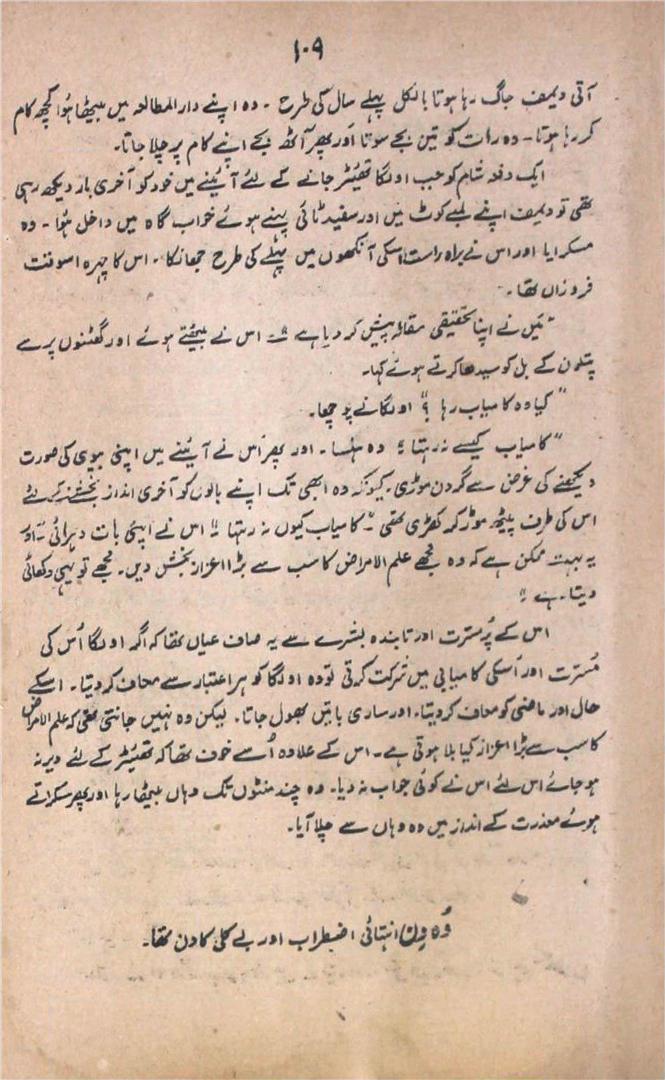 ۱۰۹
آتی دیمف جاگ رہا ہوتا بالکل پہلے سال کی طرح - وہ اپنے دارالمطالعہ میں بیٹھا ہُوا کچھ کام
کر رہا ہوتا - وہ رات کو تین بجے سوتا اور پھر آٹھ بجے اپنے کام پر چلا جاتا۔
ایک دفعہ شام کو جب اولگا تھیئٹر جانے کے لئے آئینے میں خود کو آخری بار دیکھ رہی
تھی تو دیمف اپنے لمبے کوٹ میں اور سفید ٹائی پہنے ہوئے خواب گاہ میں داخل ہُوا - وہ
مسکرایا اور اس نے براہ راست اسکی آنکھوں میں پہلے کی طرح جھانکا ۔ اس کا چہرہ اسوقت
فروزاں تھا۔
"میَں نے اپنا تحقیقی مقالہ پیش کر دیا ہے" اس نے بیٹھتے ہوئے اور گھٹنوں پر سے
پتلون کے بل کو سیدھا کرتے ہوئے کہا۔
"کیا وہ کامیاب رہا ؟" اولگا نے پوچھا۔
"کامیاب کیسے نہ رہتا" وہ ہنسا - اور پھر اُس نے آئینے میں اپنی بیوی کی صورت
دیکھنے کی غرض سے گردن موڑی۔ کیونکہ وہ ابھی تک اپنے بالوں کو آخری انداز بخشنے کے لئے
اس کی طرف پیٹھ موڑ کر کھڑی تھی "کامیاب کیوں نہ رہتا" اس نے اپنی بات دہرائی "اور
یہ بہت ممکن ہے کہ وہ مجھے علم الامراض کا سب سے بڑا اعزاز بخش دیں۔ مجھے تو یہی دکھائی
دیتا ہے"
اس کے پُر مسرت اور تابندہ بشرے سے یہ صاف عیاں تھا کہ اگر اولگا اُس کی
مُسرت اور اُسکی کامیابی میں شرکت کرتی تو وہ اولگا کو ہر اعتبار سے معاف کر دیتا۔ اسکے
حال اور ماضی کو معاف کر دیتا۔ اور ساری باتیں بھول جاتا۔ لیکن وہ نہیں جانتی تھی کہ علم الامراض
کا سب سے بڑا اعزاز کیا بلا ہوتی ہے۔ اس کے علاوہ اُسے خوف تھا کہ تھیئٹر کے لئے دیر نہ
ہو جائے اس لئے اس نے کوئی جواب نہ دیا۔ وہ چند منٹوں تک وہاں بیٹھا رہا اور پھر مسکراتے
ہوئے معذرت کے انداز میں وہ وہاں سے چلا آیا۔
وُہ دِن انتہائی اضطراب اور بے کلی کا دن تھا۔